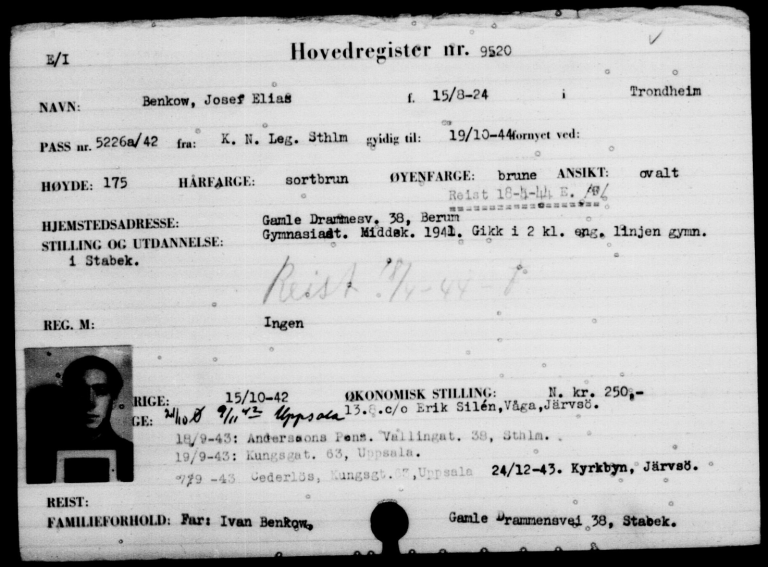 E/I
Hovedregister nr. 9520
NAVN: Benkow, Josef Elias f. 15/8-24 i Trondheim
PASS nr. 5226a/42 fra: K. N. Leg. Sthlm gyldig til: 19/10-44 fornyet ved:
HØYDE: 175 HÅRFARGE: sortbrun ØYENFARGE: brune ANSIKT: ovalt
Reist 18-4-44 E.
HJEMSTEDSADRESSE: Gamle Drammesv. 38, Berum
STILLING OG UTDANNELSE: Gymnasiast. Middsk. 1941. Gikk i 2 kl. eng. linjen gymn.
i Stabek.
Reist 18/4-44
REG. M: Ingen
RIGE: 15/10-42 ØKONOMISK STILLING: N. kr. 250,-
GE: 9/11 42 Uppsala 13.8.c/o Erik Silén, Våga, Järvsö.
18/9-43: Anderssons Pens. Vallingat. 38, Sthlm.
19/9-43: Kungsgat. 63, Uppsala.
-43 Cederlös, Kungsgt. Uppsala 24/12-43. Kyrkbyn, Järvsö.
REIST:
FAMILIEFORHOLD: Far: Ivan Benkow, Gamle Drammensvei 38, Stabek.